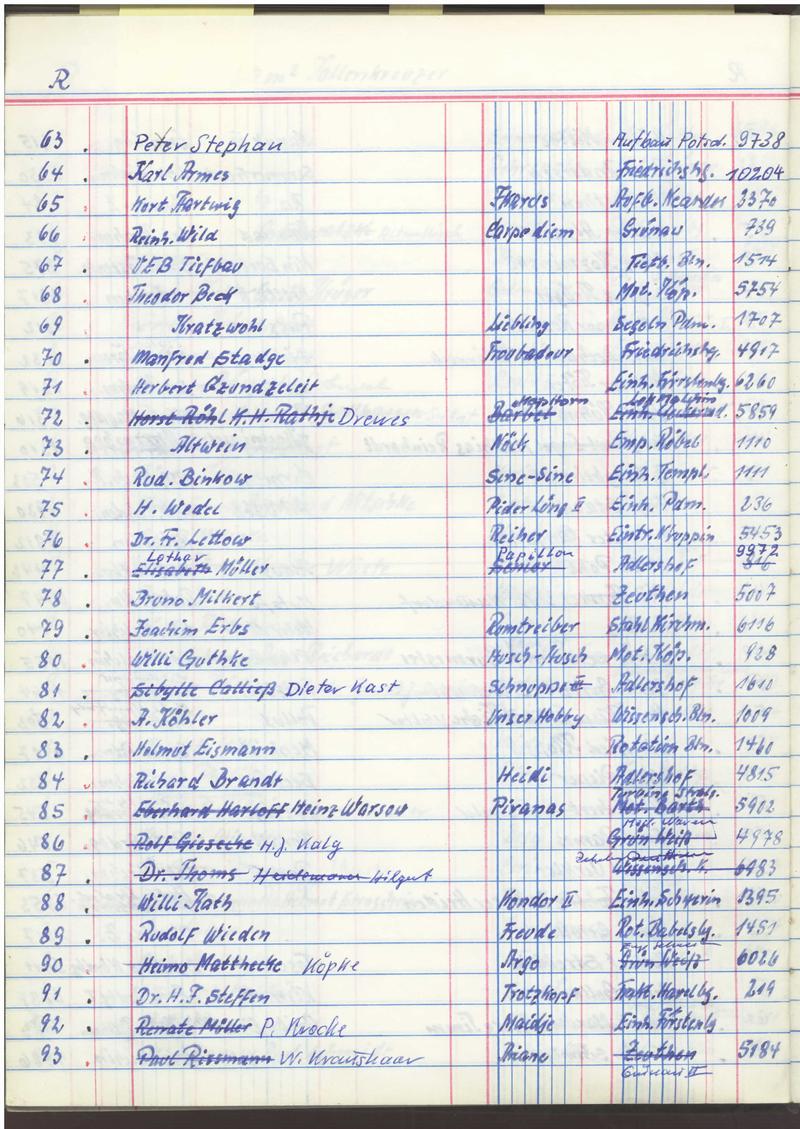 R
63 . Peter Stephan Aufbau Potsd. 9738
64 . Karl Armes Friedrichshg. 10204
65 . Kurt Hartwig Ikarus Aufb. Meander 3370
66 . Reinh. Wild Carpe diem Grünau 739
67 . VEB Tiefbau Tiefb. Bln. 1514
68 . Theodor Beck Mot. Köp. 5754
69 Kratzwohl Liebling Segeln Pdm. 1707
70 . Manfred Stadge Troubadour Friedrichshg. 4917
71 . Herbert Czundzeleit Einh. Fürstenbg. 6260
72 . Horst Röhl K.H. Rathje Drewes Barbet Kap Horn Lok Malchin 5859
73 . Altwein Nöck Emp. Röbel 1110
74 . Rud. Binkow Sine-Sine Einh. Templ. 1111
75 . H. Wedel Pider Lüng II Einh. Pdm. 236
76 . Dr. Fr. Lettow Reiher Eintr. N'ruppin 5453
Lothar Papillon 9972
77 . Elisabeth Müller Adlershof 816
78 . Bruno Milkert Zeuthen 5007
79 . Joachim Erbs Romtreiber Stahl Kirchm. 6116
80 . Willi Guthke Husch-Husch Mot. Köp. 928
81 . Sibylle Calließ Dieter Kast Schnuppe III Adlershof 1610
82 . A. Köhler Unser Hobby Wissensch. Bln. 1009
83 . Helmut Eismann Rotation Bln. 1460
84 Richard Brandt Heidi Adlershof 4815
Turbine Strals.
85 . Eberhard Harloff Heinz Warsow Piranas Mot. Barth 5902
86 . Rolf Giesecke H.J. Kalg Grün Weiß 4978
87 . Dr. Thoms Heidemann Hilgert Wissensch. H. 6983
88 . Willi Kath Kondor II Einh. Schwerin 1395
89 . Rudolf Wieden Freude Rot. Babelsbg. 1451
90 . Heimo Matthecke Köpke Argo Grün Weiß 6026
91 . Dr. H.F. Steffen Trotzkopf Trakt. Havelbg. 219
92 . Renate Müller P. Kroche Maidje Einh. Fürstenbg.
93 . Paul Rissmann W. Krautshaar Diane Zeuthen 5184
Grünau II